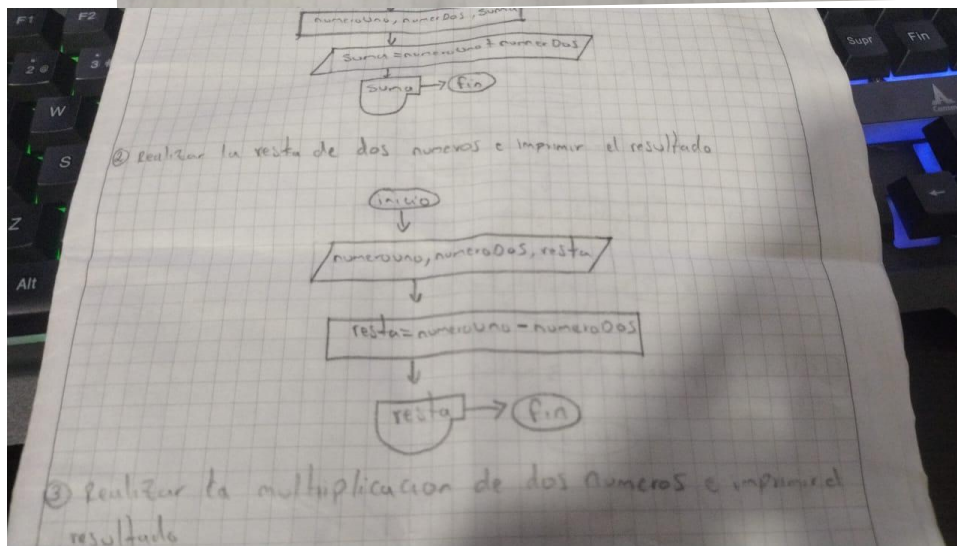 numeroUno, numeroDos, Suma
Suma = numeroUno + numeroDos
suma
fin
② Realizar la resta de dos numeros e imprimir el resultado
inicio
numeroUno, numeroDos, resta
resta = numeroUno - numeroDos
resta
fin
③ Realizar la multiplicacion de dos numeros e imprimir el
resultado
F1
F2
2
3
W
S
Z
Alt
Supr
Fin